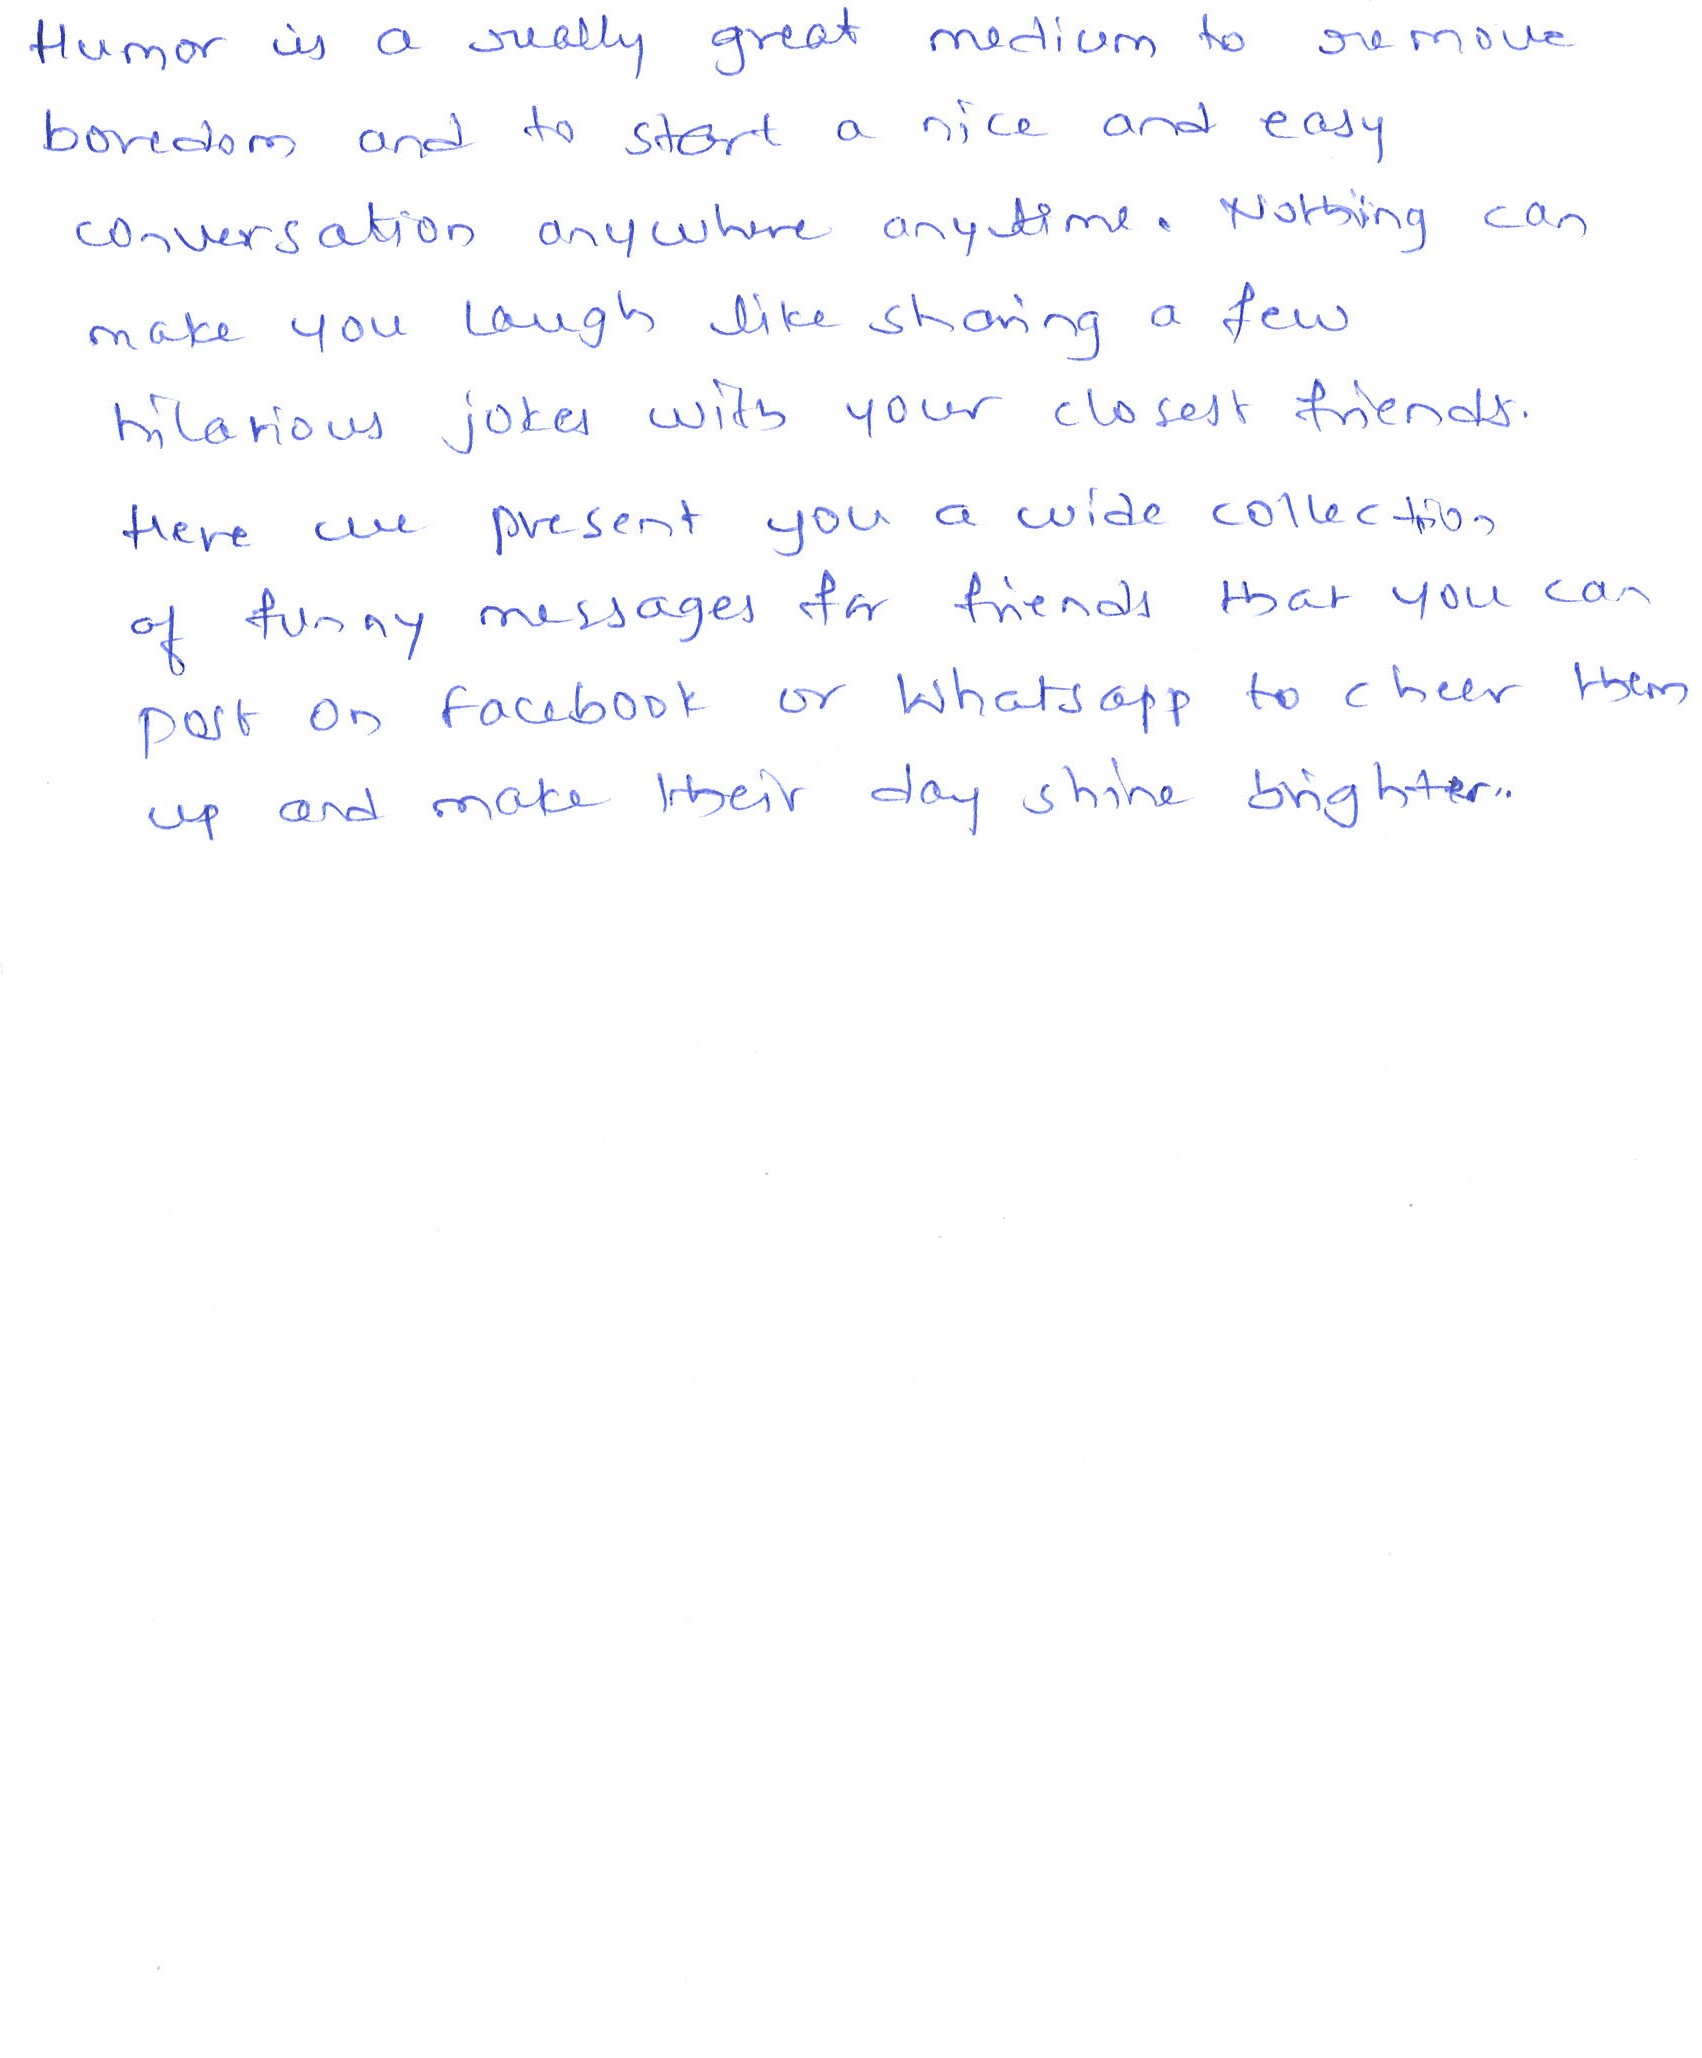 Humor is a really great medium to remove
boredom and to start a nice and easy
conversation anywhere anytime. Nothing can
make you laugh like sharing a few
hilarious jokes with your closest friends.
Here we present you a wide collection
of funny messages for friends that you can
post on facebook or Whatsapp to cheer them
up and make their day shine brighter..